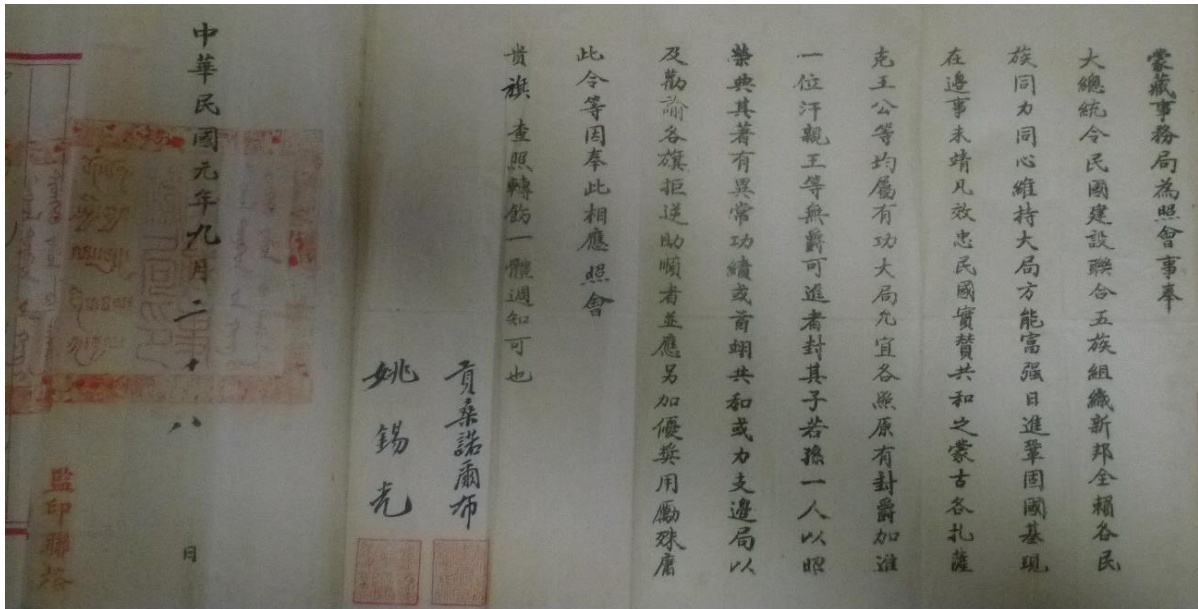 蒙藏事務局為照會事奉
大總統令民國建設聯合五族組織新邦全賴各民
族同力同心維持大局方能富强日進鞏固國基現
在邊事未靖凡效忠民國實贊共和之蒙古各扎薩
克王公等均屬有功大局允宜各照原有封爵加進
一位汗親王等無爵可進者封其子若孫一人以昭
榮典其著有異常功績或首翊共和或力支邊局以
及勸諭各旗拒逆助順者並應另加優奬用勵殊庸
此令等因奉此相應照會
贵旗查照轉飭一體週知可也
貢桑諾爾布
姚錫光
中華民國元年九月二十八日
監印聯